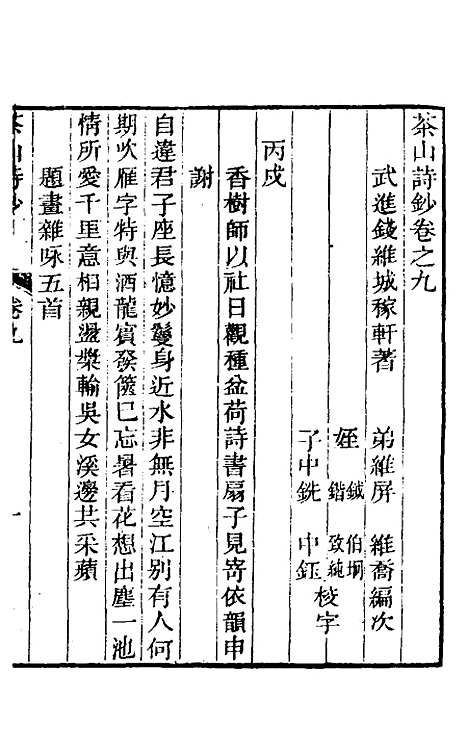 茶山詩鈔卷之九
武進錢維城稼軒著 弟維屏 維喬編次
姪 鉞 伯坰 鍇 致純 校字
子中銑 中鈺
丙戌
香樹師以社日觀種盆荷詩書扇子見寄依韻申
謝
自違君子座長憶妙鬘身近水非無月空江别有人何
期吹雁字特與酒龍賓發篋已忘暑看花想出塵一池
情所愛千里意相親盪槳輸吳女溪邊共采蘋
題畫雜咏五首
茶山詩鈔 卷九 一